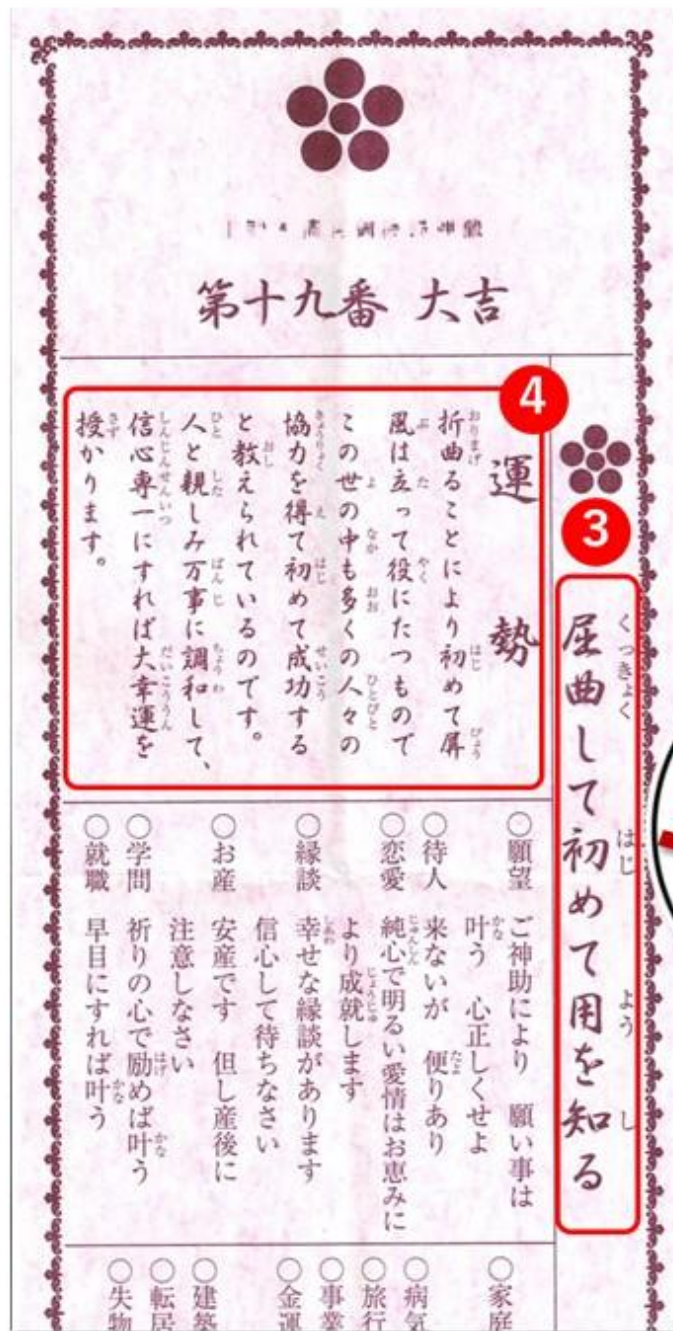 第十九番 大吉
3
屈曲して初めて用を知る
4
運勢
折曲ることにより初めて屏
風は立って役にたつもので
この世の中も多くの人々の
協力を得て初めて成功する
と教えられているのです。
人と親しみ万事に調和して、
信心専一にすれば大幸運を
授かります。
○願望 ご神助により 願い事は
叶う 心正しくせよ
○待人 来ないが 便りあり
○恋愛 純心で明るい愛情はお恵みに
より成就します
○縁談 幸せな縁談があります
信心して待ちなさい
○お産 安産です 但し産後に
注意しなさい
○学問 祈りの心で励めば叶う
○就職 早目にすれば叶う
○家庭
○病気
○旅行
○事業
○金運
○建築
○転居
○失物